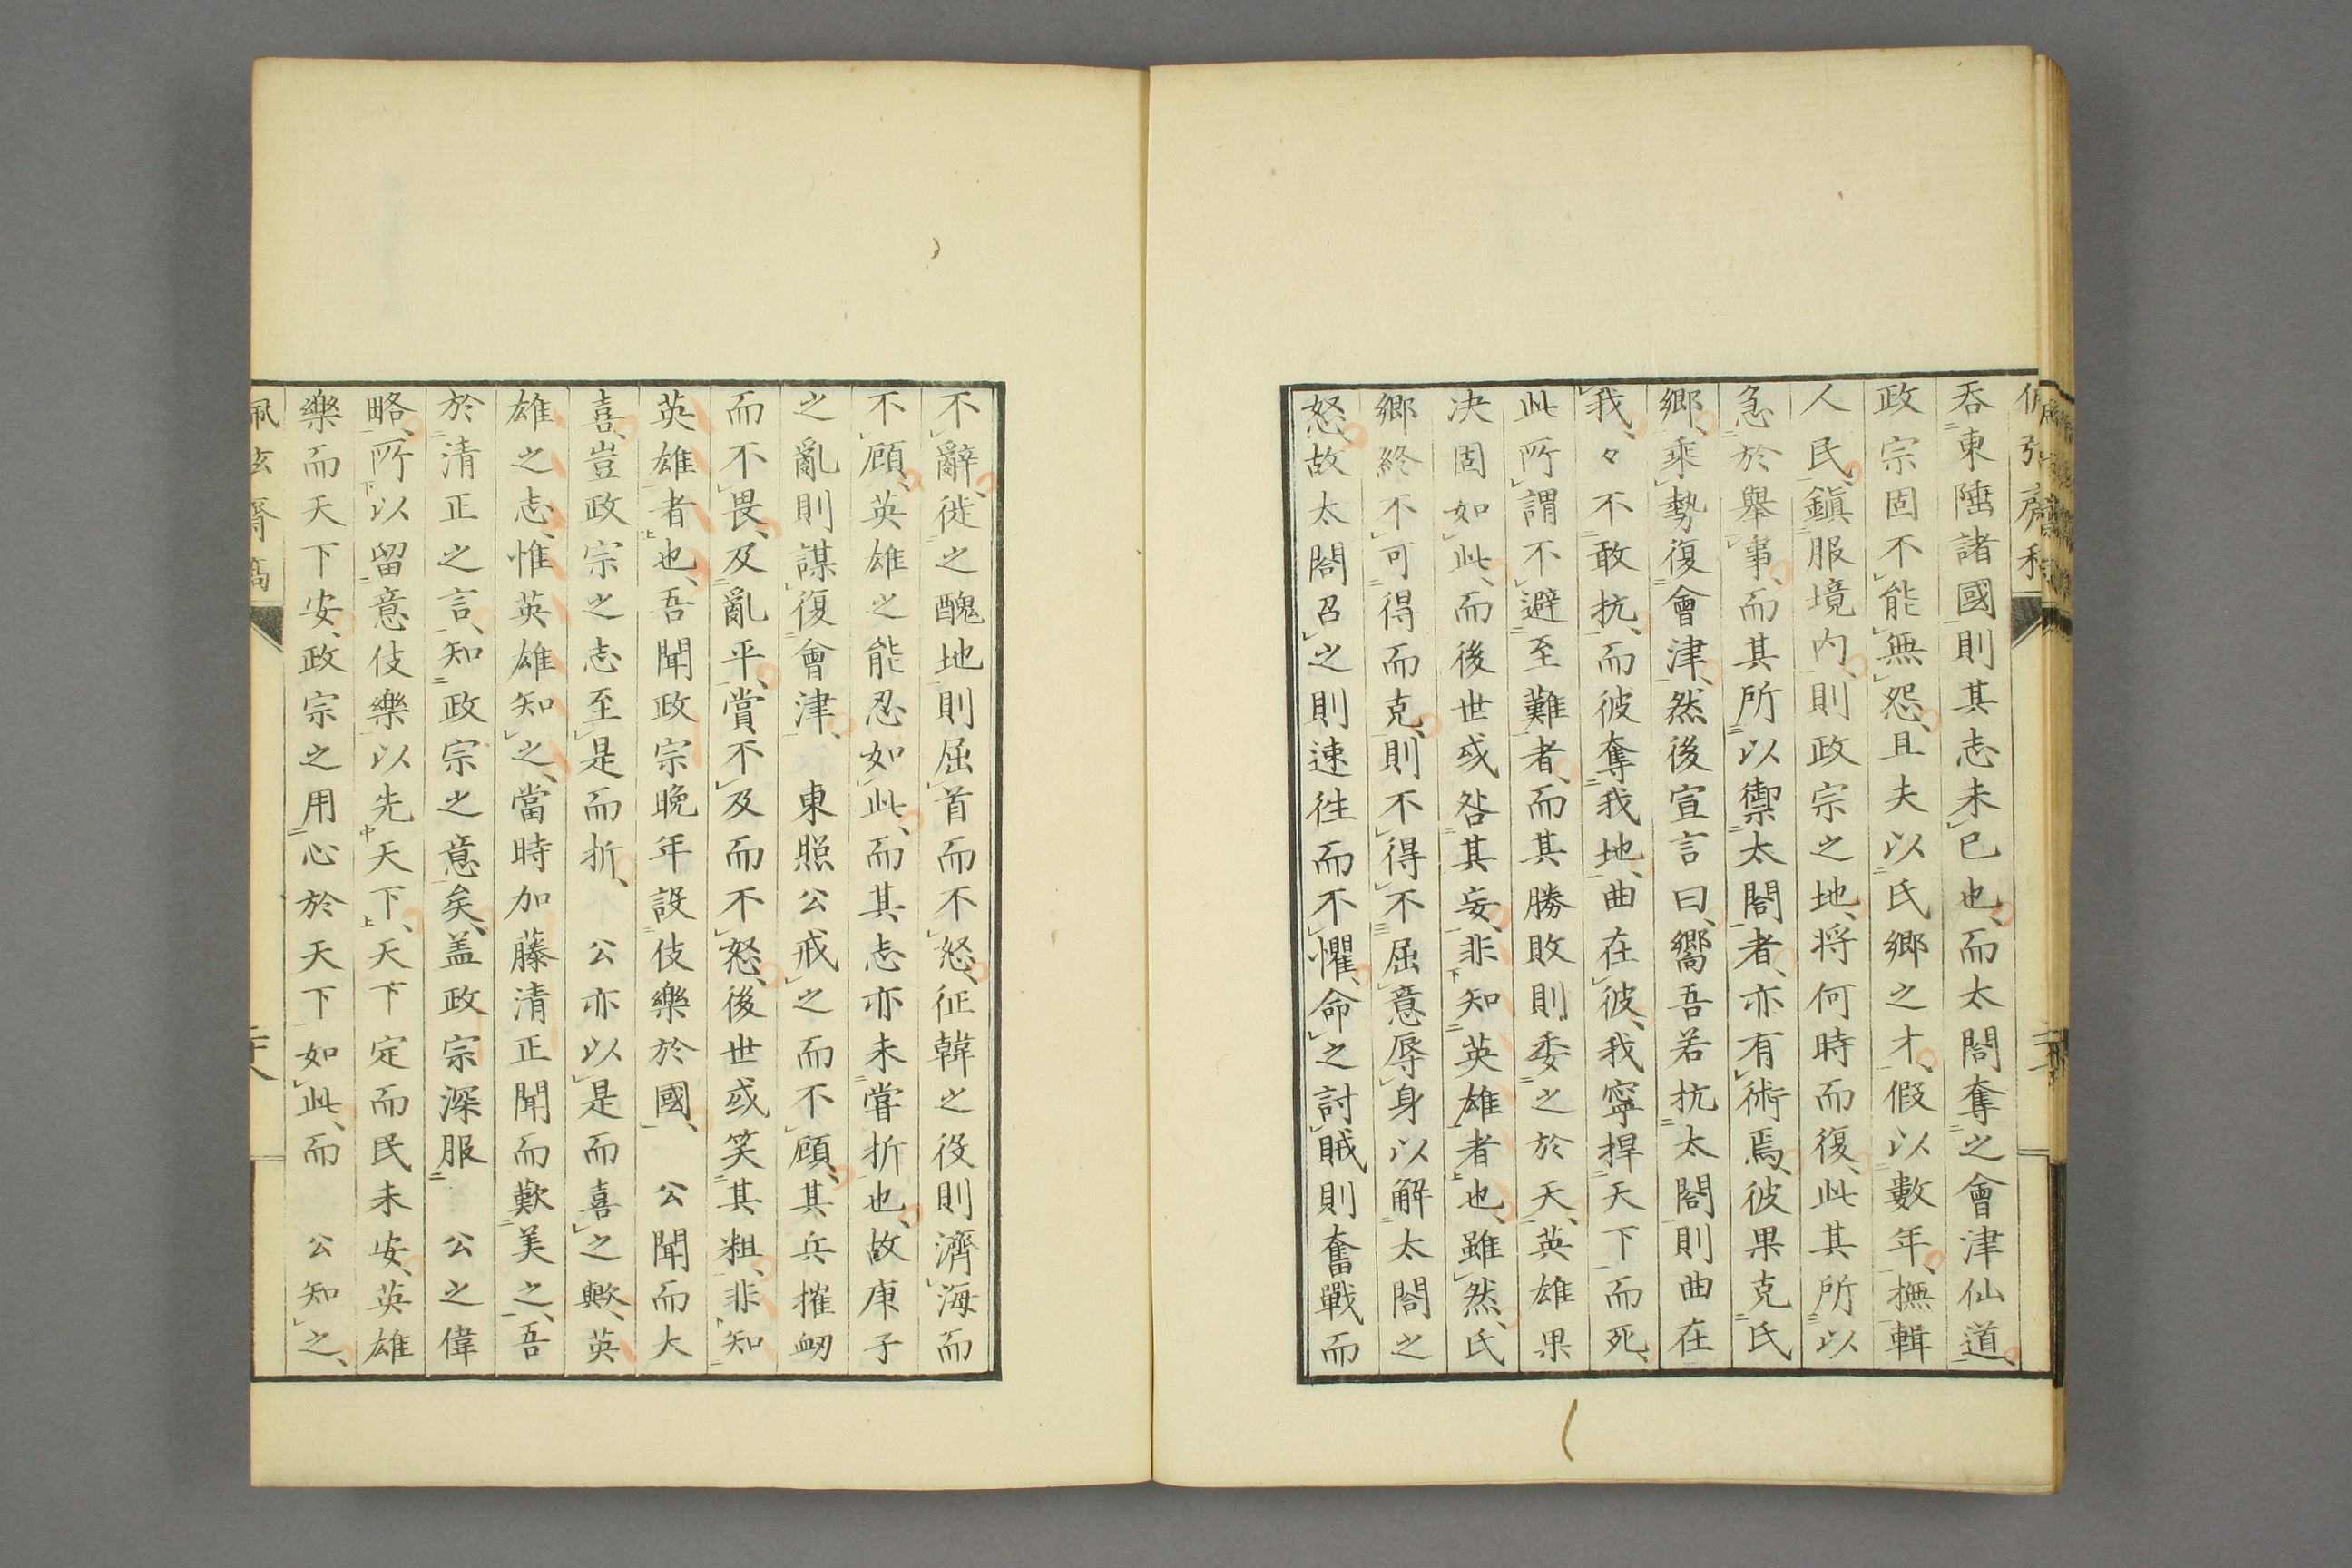 吞東陲諸國則其志未已也、而太閤奪之會津仙道、
政宗固不能無怨、且夫以氏鄉之才、假以數年、撫輯
人民、鎮服境内、則政宗之地、将何時而復、此其所以
急於舉事、而其所以禦太閤者、亦有術焉、彼果克氏
鄉、乘勢復會津、然後宣言曰、嚮吾若抗太閤則曲在
我、々不敢抗、而彼奪我地、曲在彼、我寧捍天下而死、
此所謂不避至難者、而其勝敗則委之於天、英雄果
决固如此、而後世或咎其妄、非知英雄者也、雖然、氏
鄉終不可得而克、則不得不屈意辱身以解太閤之
怒、故太閤召之則速往而不懼、命之討賊則奮戰而
不辭、徙之醜地則屈首而不怒、征韓之役則濟海而
不顧、英雄之能忍如此、而其志亦未嘗折也、故庚子
之亂則謀復會津、 東照公戒之而不顧、其兵摧衂
而不畏、及亂平、賞不及而不怒、後世或笑其粗、非知
英雄者也、吾聞政宗晚年設伎樂於國、 公聞而大
喜、豈政宗之志至是而折、 公亦以是而喜之歟、英
雄之志、惟英雄知之、當時加藤清正聞而歎美之、吾
於清正之言、知政宗之意矣、盖政宗深服 公之偉
略、所以留意伎樂以先天下、天下定而民未安、英雄
樂而天下安、政宗之用心於天下如此、而 公知之、
佩弦齋稿